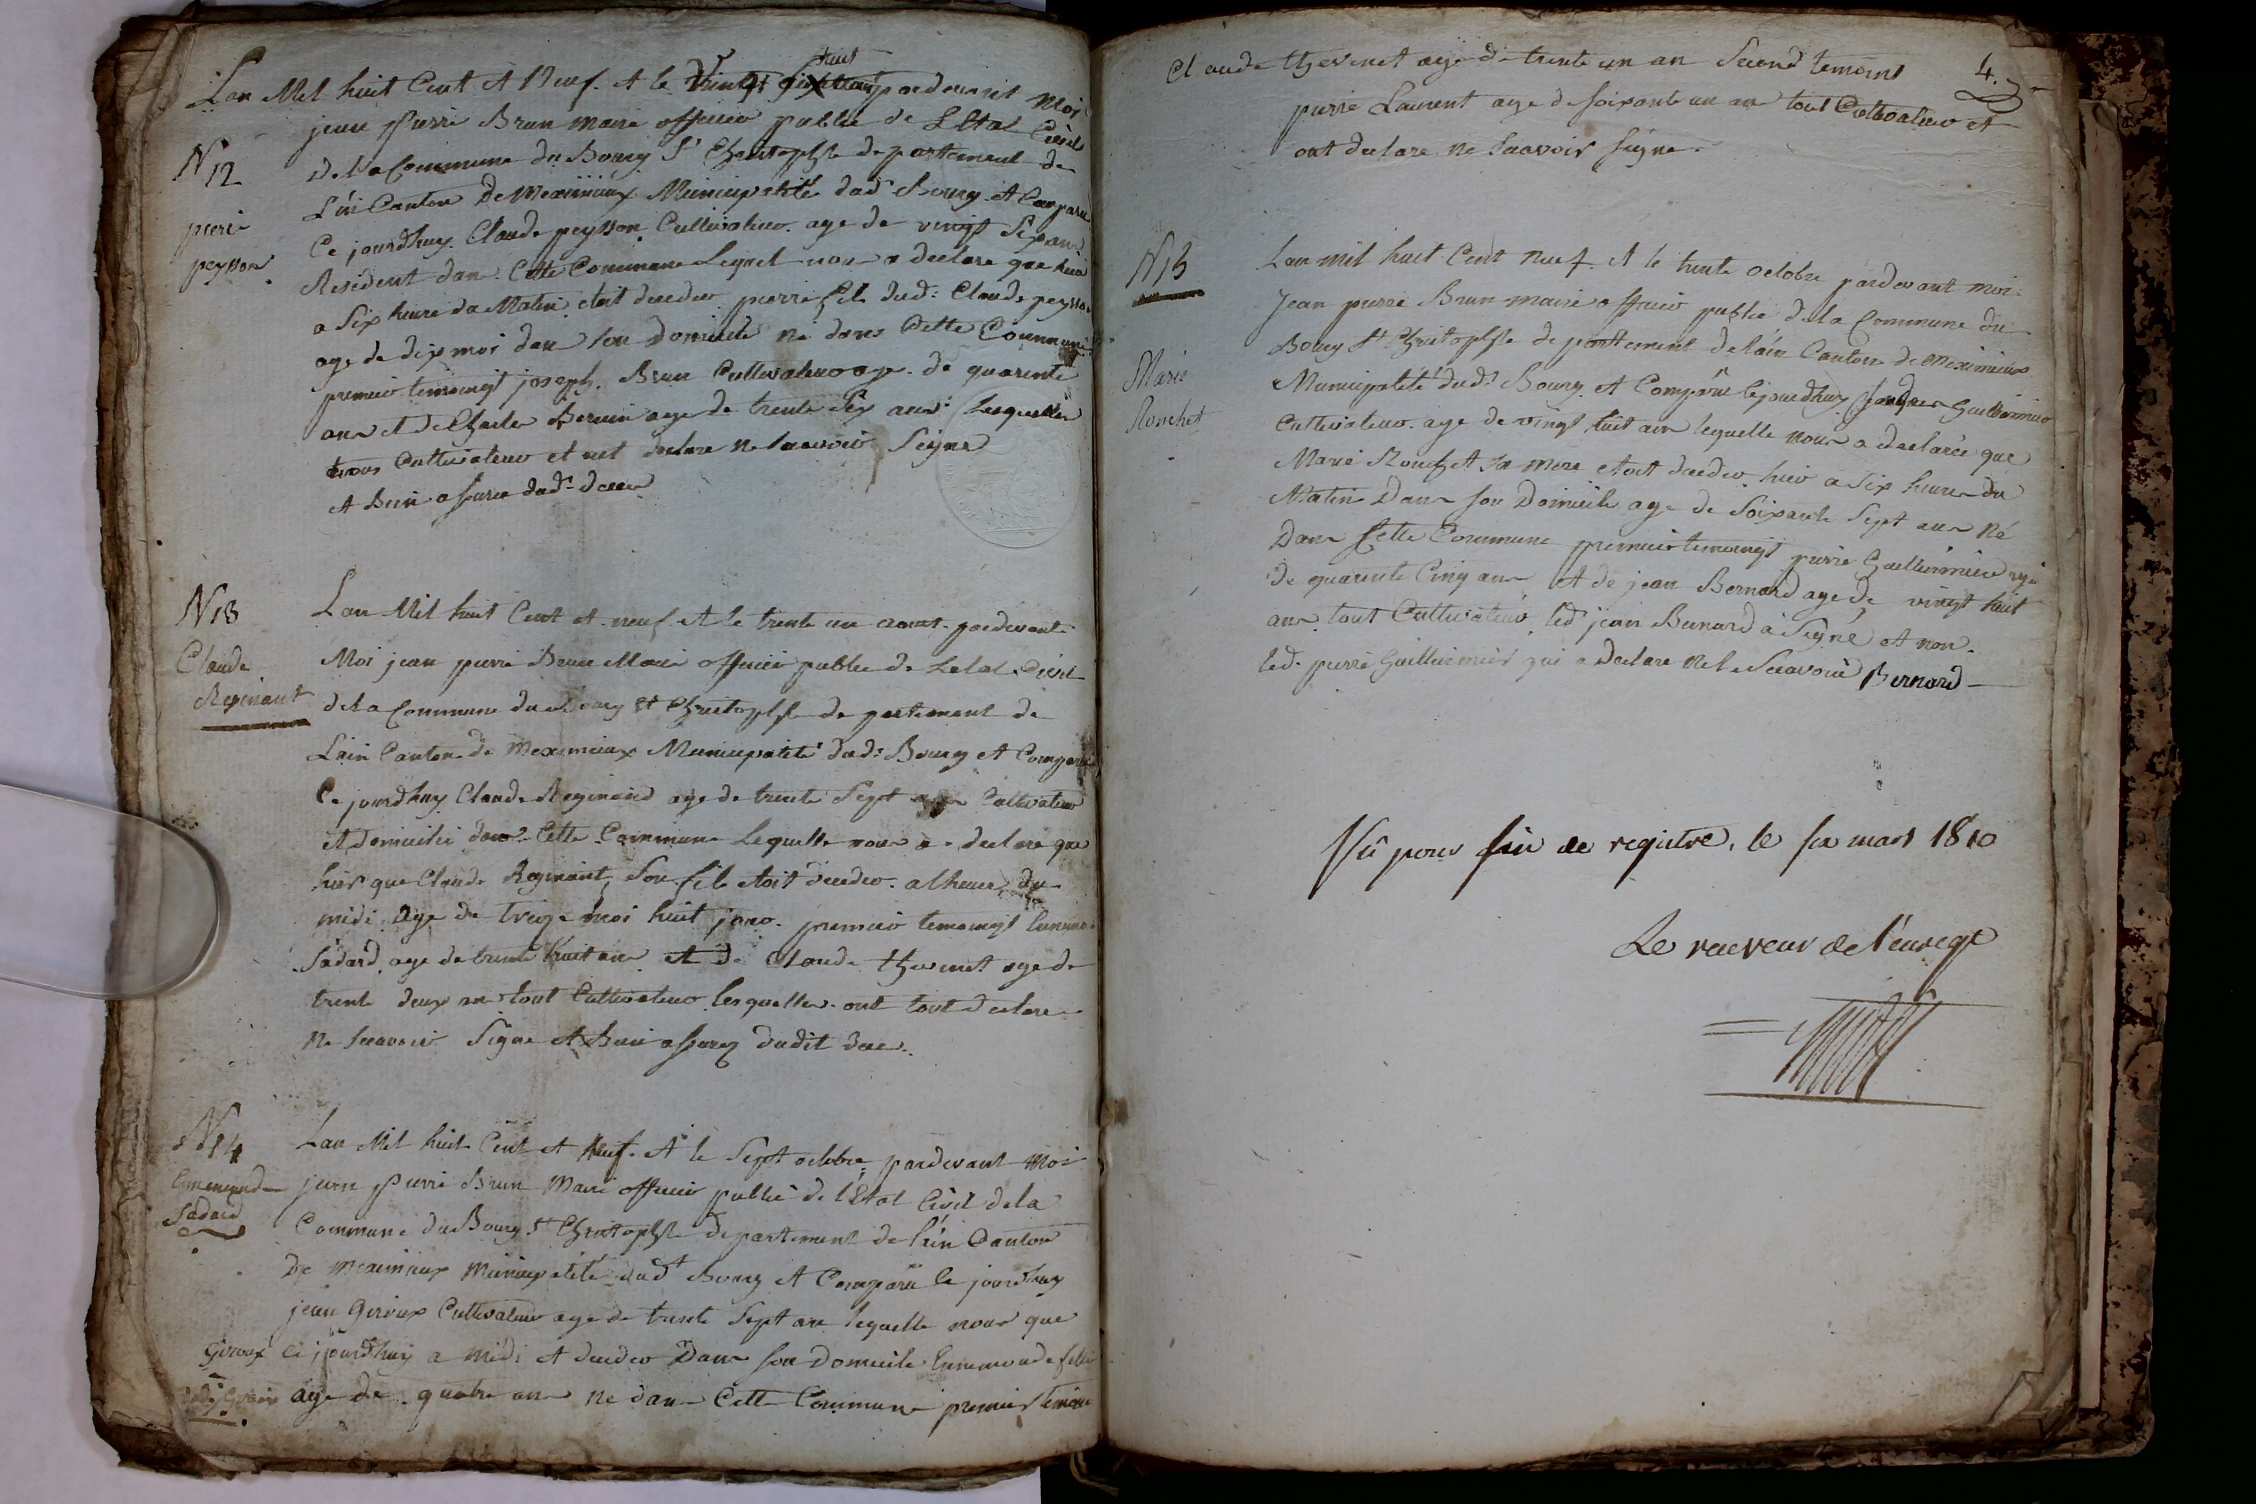 Lan Mil huit Cent et Neuf. et le Vingt huit pardevant Moi
jean pierre Brun maire officier public de LEtat Civil
N 12
de la Commune du Bourg St Christophle departement de
Lin Canton De Meximieux Municipalité dud Bourg et Comparu
pierre
Ce jourdhuy Claude peysson Cultivateur age de vingt Six ans
peysson
Resident dans Cette Commune Lequel nous a declare que hier
a Six heure du Matin etoit decedeo pierre fils dud: Claude peysson
age de dix moi dan son Domicile né dans Cette Commune
premier temoingt joseph Brun Cultivateur age de quarente
ans et de Charles age de trente Six ans Lesquelles
tous Cultivateur et ont declare ne Scavoir Signe
et dud deces
N 13
Lan Mil huit Cent et neuf et le trente un aout pardevant
Claude
Moi jean pierre Brun Maire officier public de Letat Civil
Reginant
de la Commune du Bourg St Christophle departement de
Lain Canton de Meximieux Municipalité dud: Bourg et Comparu
Ce jourdhuy Claude Reginand age de trente Sept Cultivateur
et domicilié dans Cette Commune Lequelle nous a declare que
hier que Claude Reginant, Son fils etoit decedeo a lheure du
midi age de treize moi huit jour premier temoingt
Sadard age de trente huit an et de Claude thevenet age de
trente deux an tout Cultivateur lesquelles ont tout declare
ne Scavoir Signe et dudit
N 14
Lan Mil huit Cent et Neuf et le Sept octobre pardevant Moi
Ennemonde
jean pierre Brun Maire officier public de l'Etat Civil de la
Sadard
Commune du Bourg St Christophle departement de l'ain Canton
De Meximieux Municipalité dud Bourg et Comparu Ce jourdhuy
jean Giroux Cultivateur age de trente Sept an lequelle nous que
Giroux
Ce jourdhuy a Midi et decedeo Dans son Domicile Ennemonde
age de quatre an ne dans Cette Commune premier temoin
4.
Claude thevenet age de trente un an Second temoins
pierre Laurent age de soixante un an tout Cultivateur et
ont declare ne Scavoir signe
N 15
Lan mil huit Cent neuf et le trente octobre pardevant moi
Jean pierre Brun maire officier public de la Commune du
Bourg St Christophle departement de lain Canton de Meximieux
Marie
Municipalité dud Bourg et Comparu Cejourdhuy
Ronchet
Cultivateur age de vingt huit ans lequelle nous a declarée que
Marie Ronchet Sa mere etoit decedeo hier a Six heures du
Matin Dans son Domicile age de Soixante Sept ans Né
Dans Cette Commune premier temoingt pierre age
de quarente Cinq ans et de jean Bernard age de vingt huit
ans tout Cultivateur led jean Bernard à Signé et non
led. pierre qui a Declare ne le Scavoir Bernard
Vû pour fin de registre, le six mars 1810
Le receveur de l'enregt